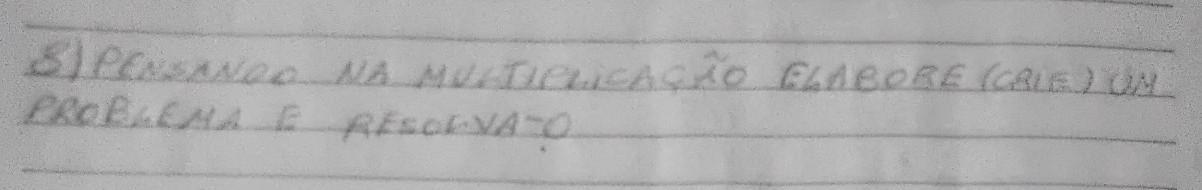 5) PENSANDO NA MULTIPLICAÇÃO ELABORE (CRIE) UM
PROBLEMA E RESOLVA-O